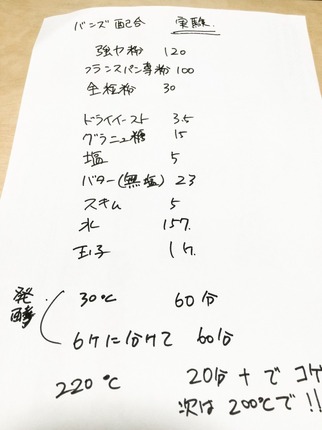 バンズ 配合 実験.
強力粉 120
フランスパン専粉 100
全粒粉 30
ドライイースト 3.5
グラニュ糖 15
塩 5
バター(無塩) 23
スキム 5
水 157.
玉子 1ケ.
発酵 30℃ 60分
6ケに分けて 60分
220℃ 20分+でコゲ
次は200℃で!!